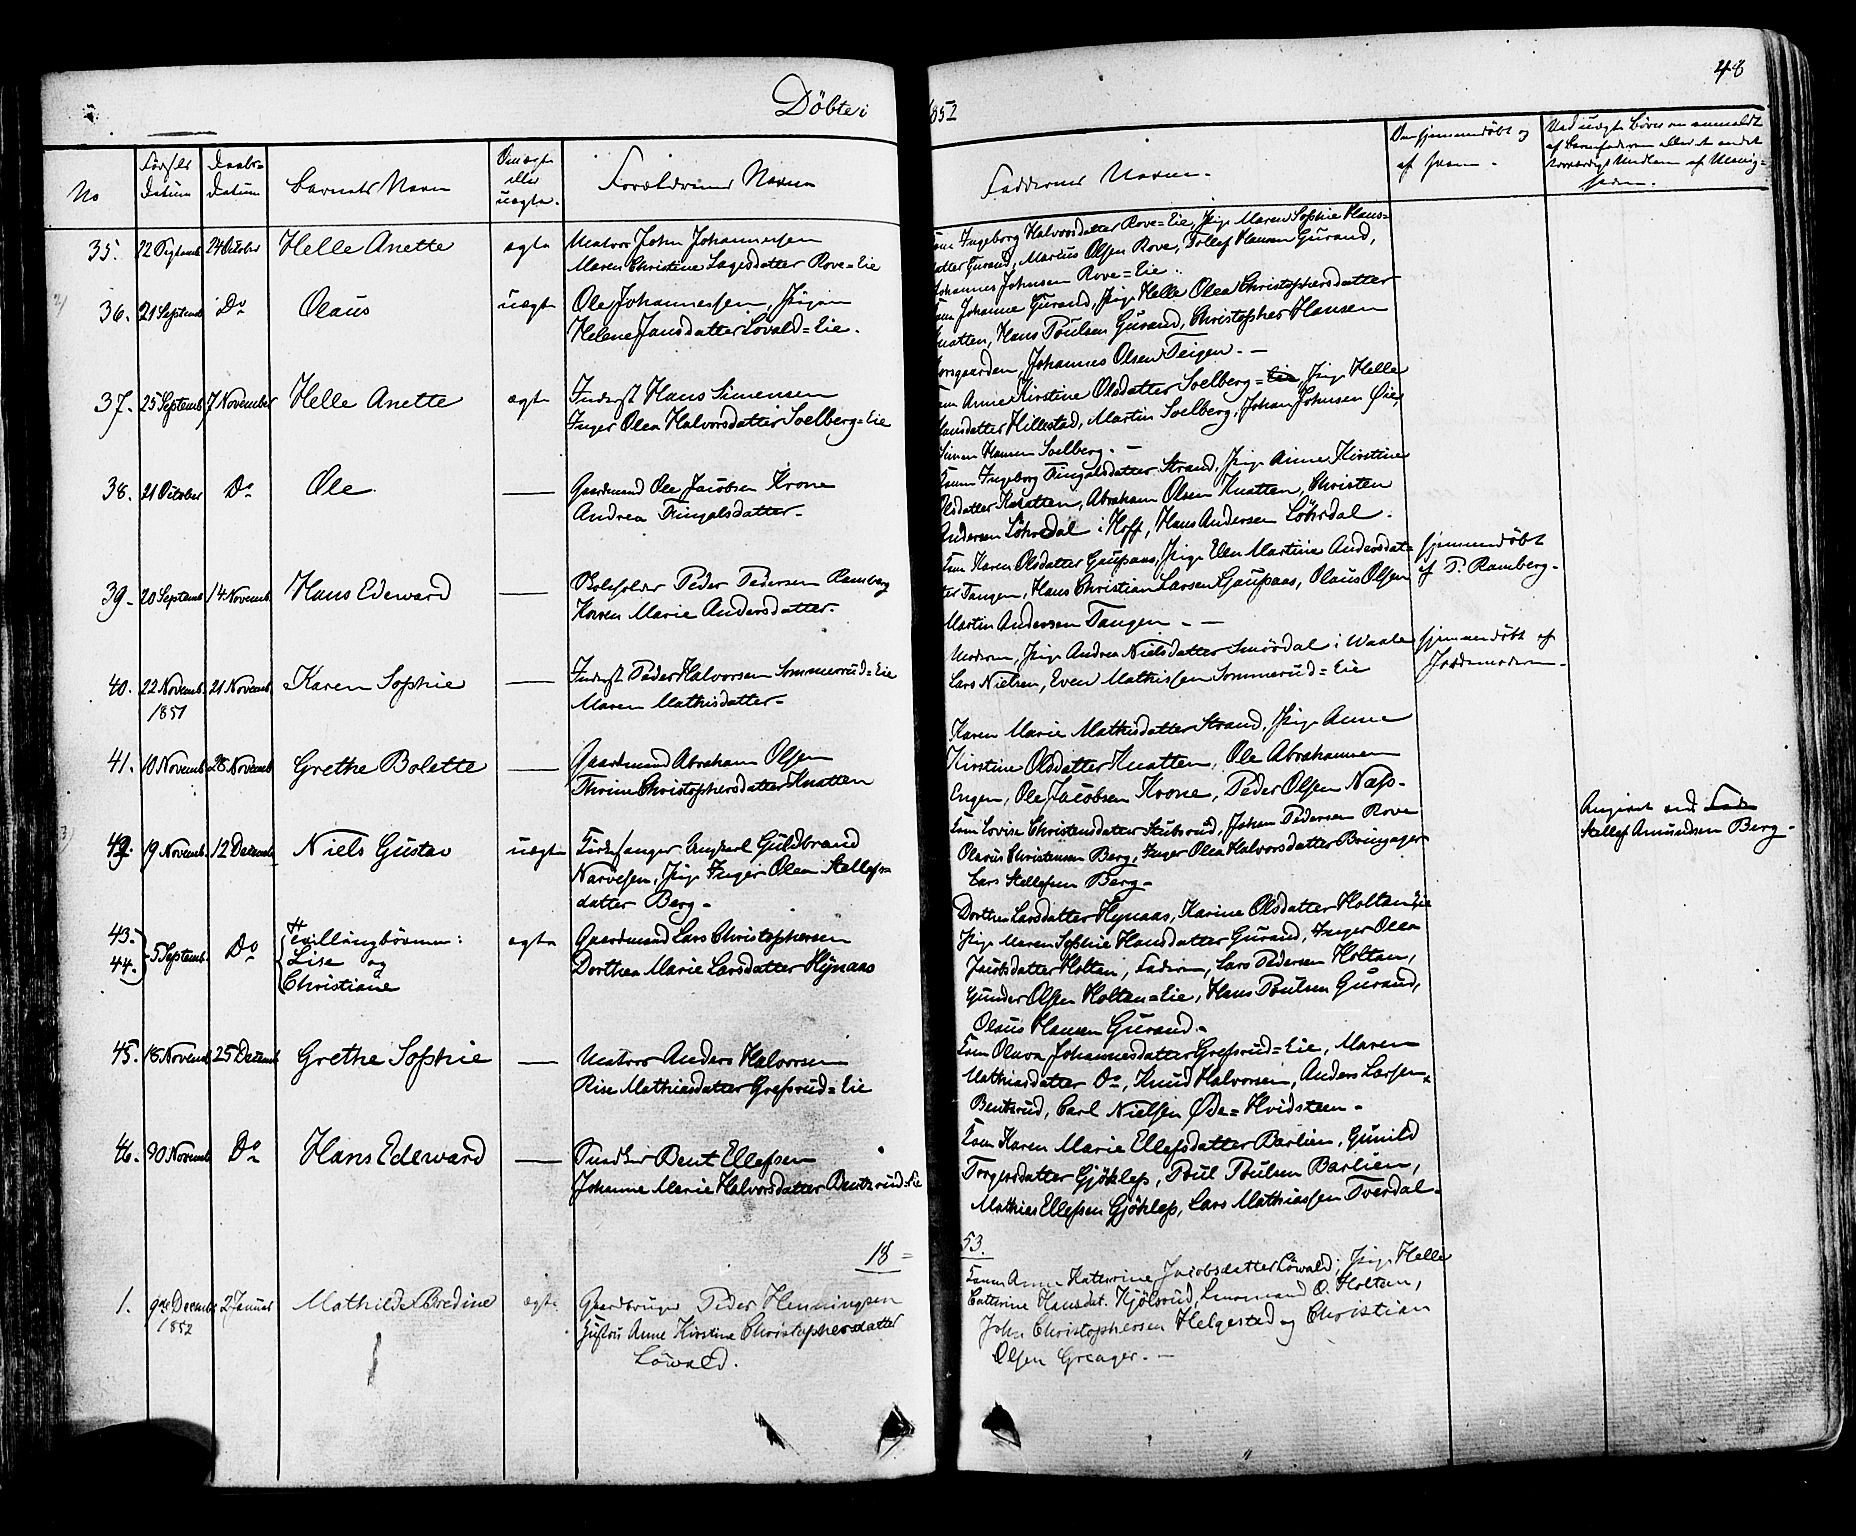 Döbte i 1852
48
No
Födsels Datum
Daabs-Datum
Barnets Navn
Om ægte eller uægte.
Forældrenes Navne
Faddernes Navne.
Om hjemmedöbt og af hvem.
35. 22 Septemb 24 October Helle Anette ægte Matros John Johannesen
Maren Christine Lagesdatter Rove=Eie
Ingeborg Halvorsdatter Rove=Eie, Pige Maren Sophie Hans=
datter Gurand, Marius Olsen Rove, Tollef Hansen Gurand,
Johannes Johnsen Rove=Eie.
36. 21 Septemb Do Olaus uægte Ole Johannessen, Pigen
Helene Jansdatter Lövald=Eie.
Johanne Gurand, Pige Helle Olea Christophersdatter
Knatten, Hans Poulsen Gurand, Christopher Hansen
Johannes Olsen Teigen. —
37. 25 Septemb 7 November Helle Anette ægte Inderst Hans Simensen
Inger Olea Halvorsdatter Soelberg=Eie
Anne Kirstine Olsdatter Soelberg=Eie, Pige Helle
Hansdatter Hillestad, Martin Soelberg, Johan Johnsen Öie,
Simen Hansen Soelberg. —
38. 21 October Do Ole — Gaardmand Ole Jacobsen Krone
Andrea Fingalsdatter.
Ingeborg Fingalsdatter Strand, Pige Anne Kirstine
Olsdatter Knatten, Abraham Olsen Knatten, Christen
Andersen Löhrdal i Hoff, Hans Andersen Löhrdal.
39. 20 Septemb 14 Novemb Hans Edeward — Peder Pedersen Ramberg
Karen Marie Andersdatter.
Karen Olsdatter Gaupaas, Pige Elen Martine Andersdat=
ter Tangen, Hans Christian Larsen Gaupaas, Olaus Olsen
Martin Andersen Tangen — —
hjemmedöbt
af P. Ramberg.
40. 22 Novemb 1851 21 Novemb Karen Sophie — Inderst Peder Halvorsen Sommerud=Eie
Maren Mathisdatter.
Moderen, Pige Andrea Nielsdatter Smördal i Waale
Lars Nielsen, Even Mathissen Sommerud=Eie
hjemmedöbt af
Jordemoderen
41. 10 Novemb 28 Novemb Grethe Bolette — Gaardmand Abraham Olsen
Thrine Christophersdatter Knatten
Karen Marie Mathisdatter Strand, Pige Anne
Kirstine Olsdatter Knatten, Ole Abrahamsen
Engen, Ole Jacobsen Krone, Peder Olsen Næss.
42. 19 Novemb 12 Decemb Niels Gustav uægte Ungkarl Guldbrand
Narvesen, Pige Inger Olea Stellefs=
datter Berg.
Lovise Christensdatter Stubsrud, Johan Pedersen Rove
Olavus Christensen Berg, Inger Olea Halvorsdatter Bringager
Lars Stellefsen Berg.
Angivet ved
Stellef Amundsen Berg.
43. 44. 5 Septemb Do Tvillingbörnene:
Lise og
Christiane
ægte Gaardmand Lars Christophersen
Dorthea Marie Larsdatter Hynaas
Dorthea Larsdatter Hynaas, Karine Olsdatter Holtan=Eie
Pige Maren Sophie Hansdatter Gurand, Inger Olea
Jacobsdatter Holtan, Faderen, Lars Pedersen Holtan,
Gunder Olsen Holtan=Eie, Hans Poulsen Gurand,
Olaus Hansen Gurand.
45. 18 Novemb 25 Decemb Grethe Sophie — Matros Anders Halvorsen
Rise Mathiasdatter Grefsrud=Eie
Olava Johannesdatter Grefsrud=Eie, Maren
Mathiasdatter Do, Knud Halvorsen, Anders Larsen
Bentsrud, Carl Nielsen Öde=Hvidsteen.
46. 30 Novemb Do Hans Edeward — Snedker Bent Ellefsen
Johanne Marie Halvorsdatter Bentsrud=Eie
Karen Marie Ellefsdatter Barlien, Gunild
Torgersdatter Gjöklep, Poul Poulsen Barlien,
Mathias Ellefsen Gjöklep, Lars Mathiassen Tverdal.
18 53.
1. 9de Decemb 1852 2 Januar Mathilde Bredine ægte Gaardbruger Peder Henningsen
Hustru Anne Kirstine Christophersdatter
Löwald.
Anne Kathrine Jacobsdatter Löwald, Pige Helle
Cathrine Hansdat. Kjölsrud, O. Holtan,
John Christophersen Helgestad og Christian
Olsen Greager. —